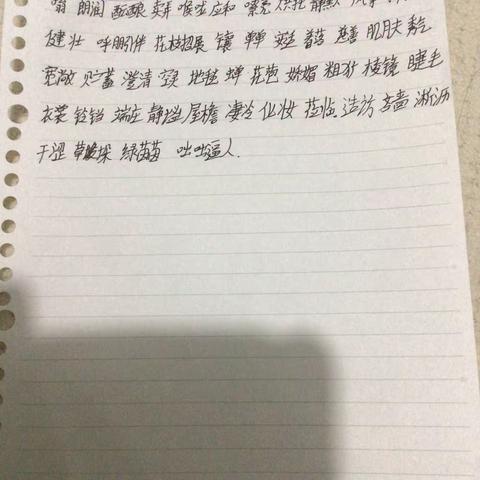 朗润 酝酿 卖弄 喉咙 应和 嘹亮 烘托 静默
健壮 呼朋引伴 花枝招展 镶 单 安适 着落 慈善 肌肤
宽敞 贮蓄 澄清 空灵 地毯 蝉 花苞 娇媚 粗犷 棱镜 睫毛
衣裳 铃铛 端庄 静谧 屋檐 凄冷 化妆 莅临 造访 吝啬 淅沥
干涩 草垛 绿茵茵 咄咄逼人.